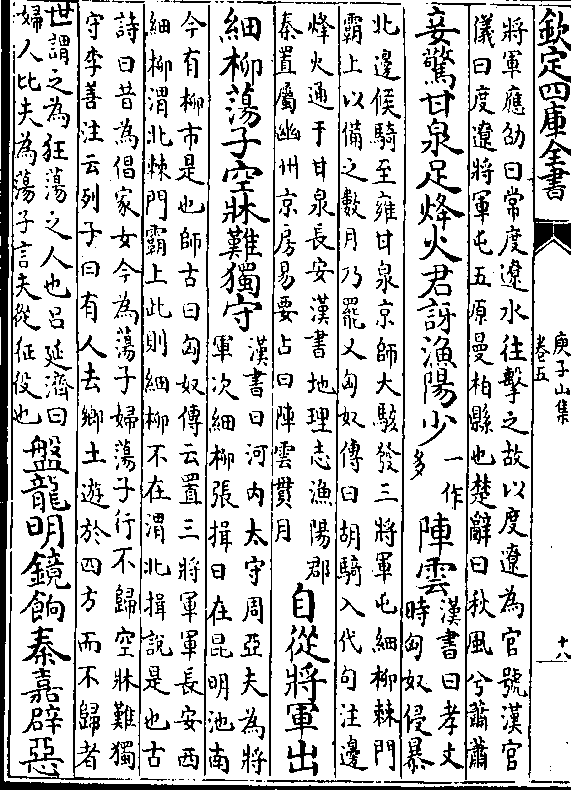 欽定四庫全書
庾子山集
卷五
十八
將軍應劭曰常度遼水往擊之故以度遼為官號漢官
儀曰度遼將軍屯五原曼柏縣也楚辭曰秋風兮蕭蕭
妾驚甘泉足烽火君訝漁陽少一作多陣雲漢書曰孝文時匈奴侵暴
北邊候騎至雍甘泉京師大駭發三將軍屯細柳棘門
霸上以備之數月乃罷又匈奴傳曰胡騎入代句注邊
烽火通于甘泉長安漢書地理志漁陽郡
秦置屬幽州京房易要占曰陣雲貫月自從將軍出
細柳蕩子空牀難獨守漢書曰河內太守周亞夫為將
軍次細柳張揖曰在昆明池南
今有柳市是也師古曰匈奴傳云置三將軍軍長安西
細柳渭北棘門霸上此則細柳不在渭北揖說是也古
詩曰昔為倡家女今為蕩子婦蕩子行不歸空牀難獨
守李善注云列子曰有人去鄉土遊於四方而不歸者
世謂之為狂蕩之人也呂延濟曰
婦人比夫為蕩子言夫從征役也盤龍明鏡餉秦嘉辟惡